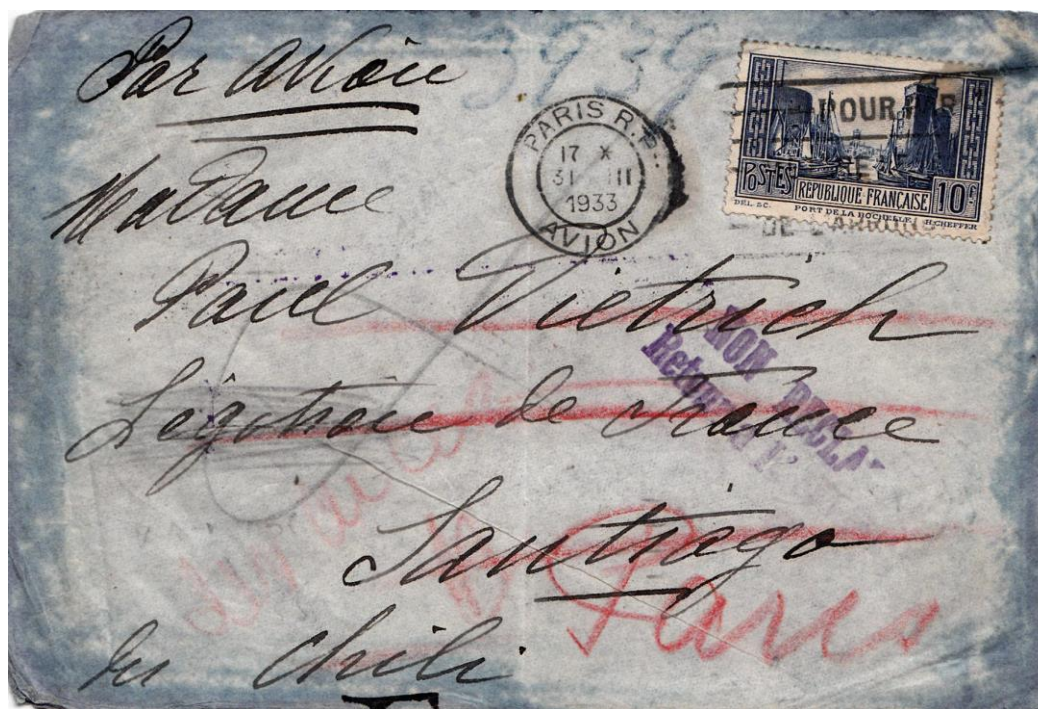 Par Avion
3939
PARIS R.P.
17 X
31 III
1933
AVION
POUR
POSTES
REPUBLIQUE FRANÇAISE
10F
DEL. SC. PORT DE LA ROCHELLE H.CHEFFER
Madame
Paul Dietrich
NON RECLA
Retour
Légation de France
Santiago
Paris
du Chili